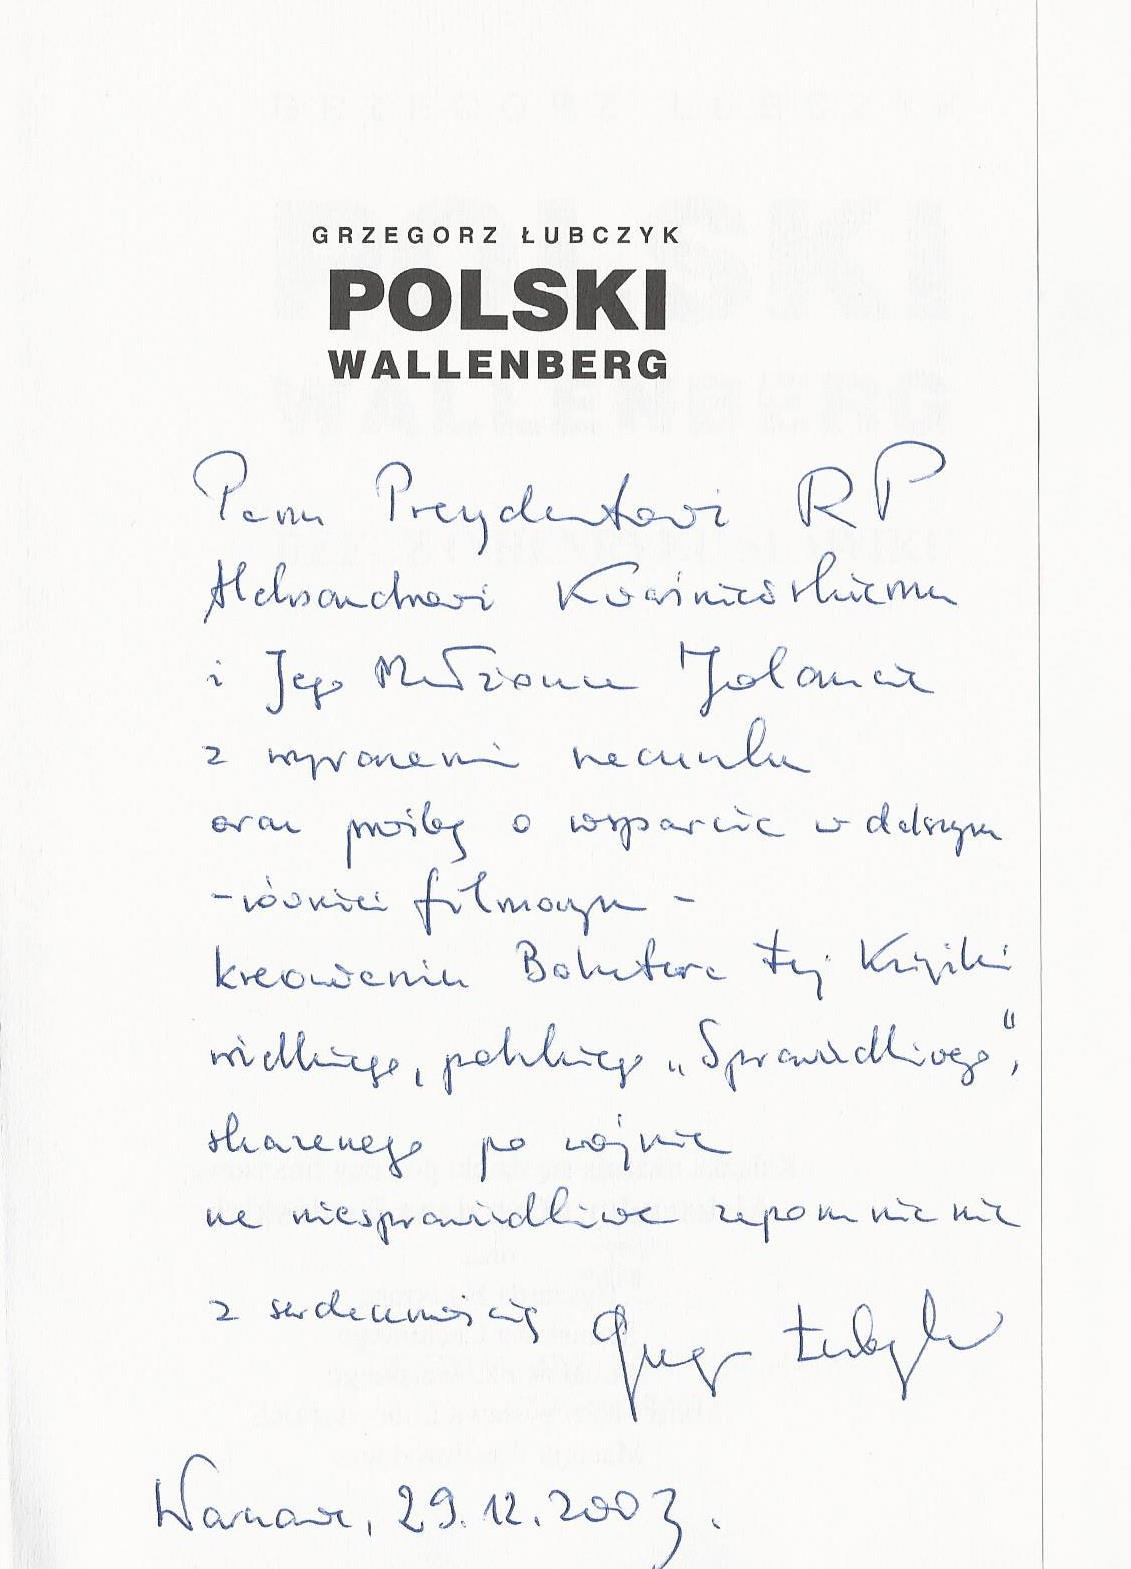 GRZEGORZ ŁUBCZYK
POLSKI
WALLENBERG
Panu Prezydentowi RP
Aleksandrowi Kwaśniewskiemu
i Jego Małżonce Jolancie
z wyrazami szacunku
oraz prośbą o wsparcie w dalszym
- również filmowym -
kreowaniu Bohatera tej Książki
wielkiego, polskiego „Sprawiedliwego”,
skazanego po wojnie
na niesprawiedliwe zapomnienie
z serdecznością Grzegorz Łubczyk
Warszawa, 29.12.2003.